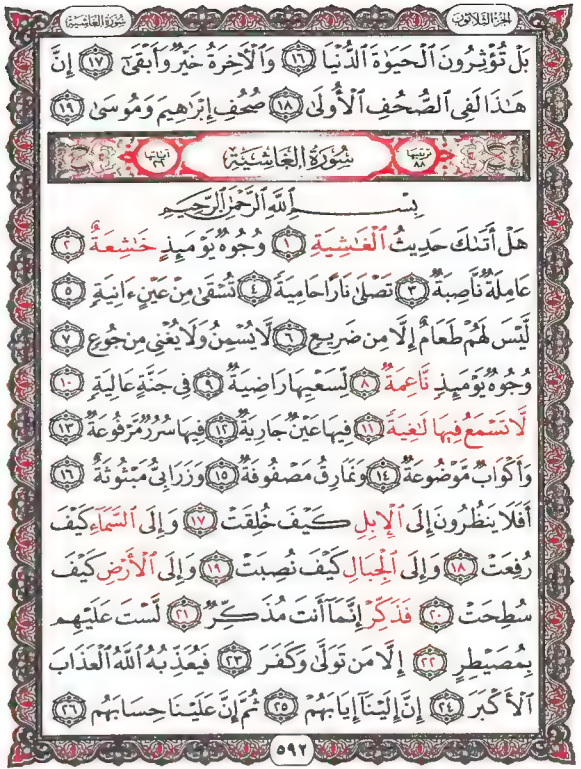 الجزء الثلاثون
سورة الغاشية
بَلْ تُؤْثِرُونَ ٱلْحَيَوٰةَ ٱلدُّنْيَا ١٦ وَٱلْأَخِرَةُ خَيْرٌ وَأَبْقَىٰٓ ١٧ إِنَّ
هَـٰذَا لَفِى ٱلصُّحُفِ ٱلْأُولَىٰ ١٨ صُحُفِ إِبْرَٰهِيمَ وَمُوسَىٰ ١٩
ترتيبها ٨٨
سُورَةُ الْغَاشِيَةِ
آياتها ٢٦
بِسْمِ ٱللَّهِ ٱلرَّحْمَـٰنِ ٱلرَّحِيمِ
هَلْ أَتَىٰكَ حَدِيثُ ٱلْغَـٰشِيَةِ ١ وُجُوهٌ يَوْمَئِذٍ خَـٰشِعَةٌ ٢
عَامِلَةٌ نَّاصِبَةٌ ٣ تَصْلَىٰ نَارًا حَامِيَةً ٤ تُسْقَىٰ مِنْ عَيْنٍ ءَانِيَةٍ ٥
لَّيْسَ لَهُمْ طَعَامٌ إِلَّا مِن ضَرِيعٍ ٦ لَّا يُسْمِنُ وَلَا يُغْنِى مِن جُوعٍ ٧
وُجُوهٌ يَوْمَئِذٍ نَّاعِمَةٌ ٨ لِّسَعْيِهَا رَاضِيَةٌ ٩ فِى جَنَّةٍ عَالِيَةٍ ١٠
لَّا تَسْمَعُ فِيهَا لَـٰغِيَةً ١١ فِيهَا عَيْنٌ جَارِيَةٌ ١٢ فِيهَا سُرُرٌ مَّرْفُوعَةٌ ١٣
وَأَكْوَابٌ مَّوْضُوعَةٌ ١٤ وَنَمَارِقُ مَصْفُوفَةٌ ١٥ وَزَرَابِىُّ مَبْثُوثَةٌ ١٦
أَفَلَا يَنظُرُونَ إِلَى ٱلْإِبِلِ كَيْفَ خُلِقَتْ ١٧ وَإِلَى ٱلسَّمَآءِ كَيْفَ
رُفِعَتْ ١٨ وَإِلَى ٱلْجِبَالِ كَيْفَ نُصِبَتْ ١٩ وَإِلَى ٱلْأَرْضِ كَيْفَ
سُطِحَتْ ٢٠ فَذَكِّرْ إِنَّمَآ أَنتَ مُذَكِّرٌ ٢١ لَّسْتَ عَلَيْهِم
بِمُصَيْطِرٍ ٢٢ إِلَّا مَن تَوَلَّىٰ وَكَفَرَ ٢٣ فَيُعَذِّبُهُ ٱللَّهُ ٱلْعَذَابَ
ٱلْأَكْبَرَ ٢٤ إِنَّ إِلَيْنَآ إِيَابَهُمْ ٢٥ ثُمَّ إِنَّ عَلَيْنَا حِسَابَهُم ٢٦
٥٩٢